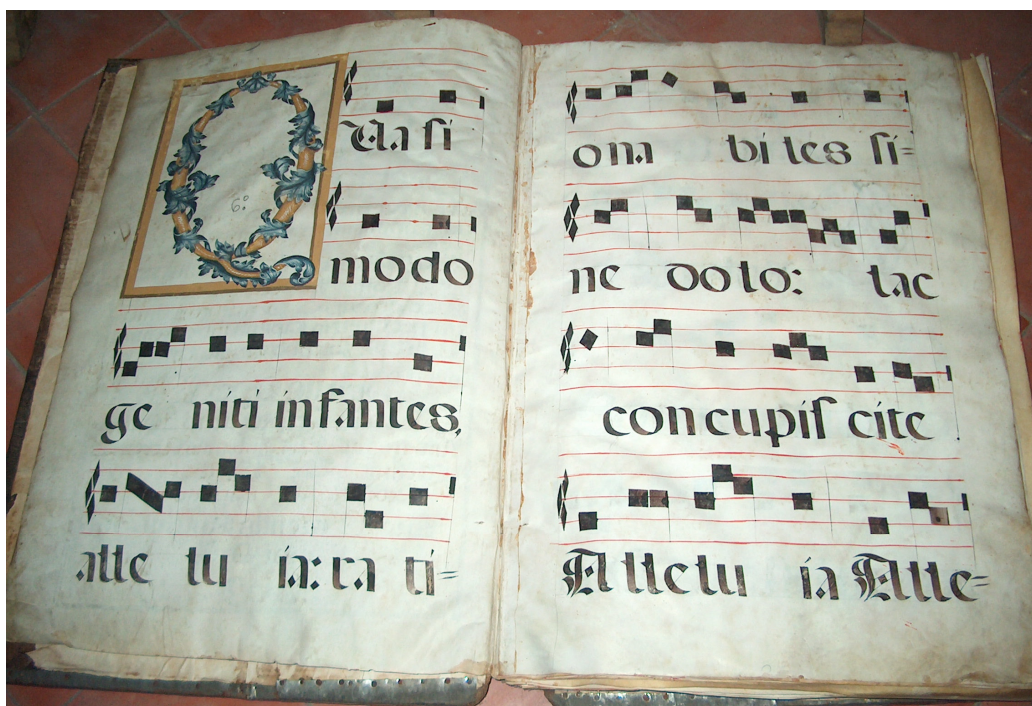 6º
QUa ſi
modo
ge niti infantes,
alle lu ia: ra ti=
ona bi les ſi=
ne do lo: lac
con cupiſ cite
Al le lu ia Alle=